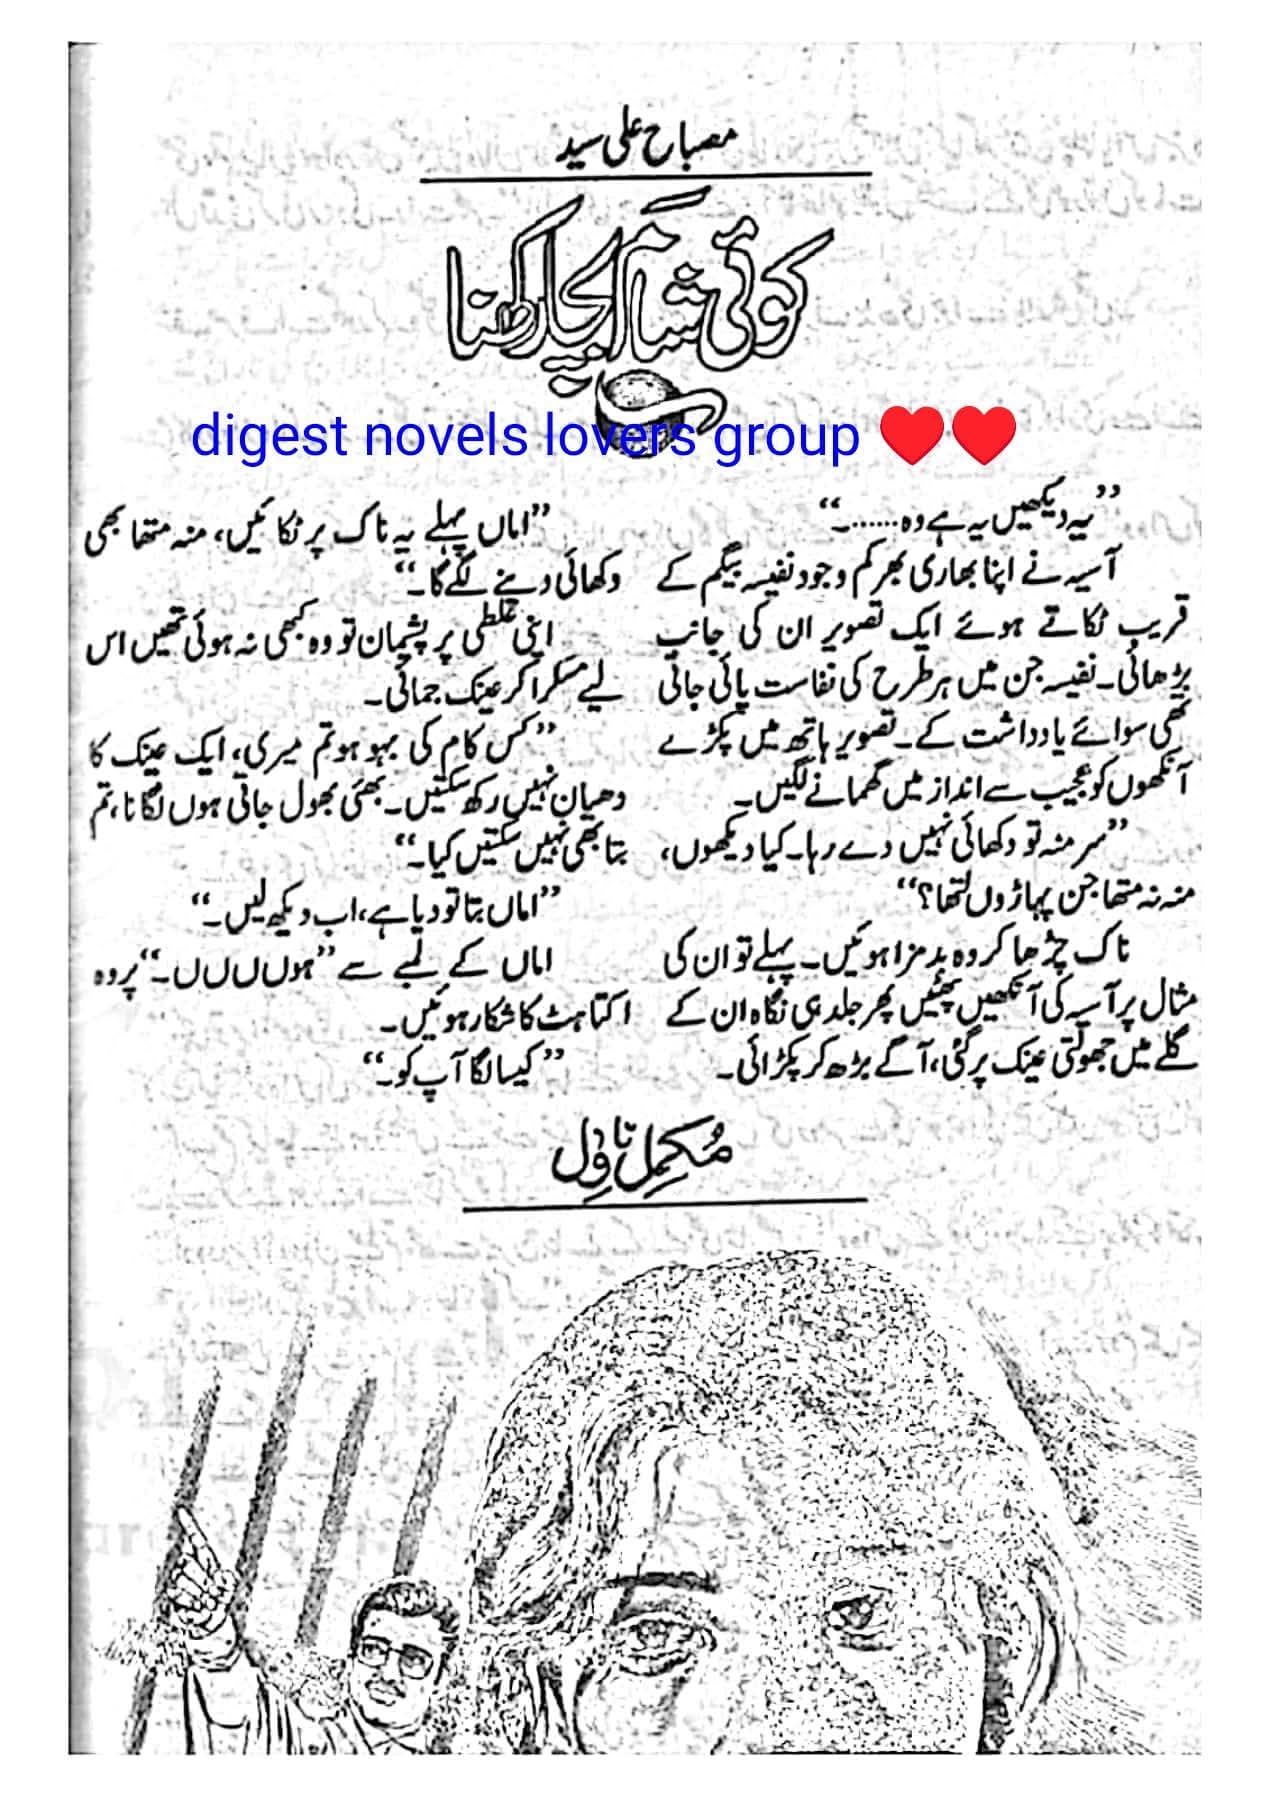 مصباح علی سید
کوئی شام بچا رکھنا
digest novels lovers group ❤️❤️
”یہ دیکھیں یہ ہے وہ......۔“
آسیہ نے اپنا بھاری بھرکم وجود نفیسہ بیگم کے
قریب ٹکاتے ہوئے ایک تصویر ان کی جانب
بڑھائی۔ نفیسہ جن میں ہر طرح کی نفاست پائی جاتی
تھی سوائے یادداشت کے۔ تصویر ہاتھ میں پکڑے
آنکھوں کو عجیب سے انداز میں گھمانے لگیں۔
”سر منہ تو دکھائی نہیں دے رہا۔ کیا دیکھوں،
منہ نہ متھا جن پہاڑوں لتھا؟“
ناک چڑھا کر وہ بدمزا ہوئیں۔ پہلے تو ان کی
مثال پر آسیہ کی آنکھیں پھٹیں پھر جلد ہی نگاہ ان کے
گلے میں جھولتی عینک پر گئی، آگے بڑھ کر پکڑائی۔
”اماں پہلے یہ ناک پر ٹکائیں، منہ متھا بھی
دکھائی دینے لگے گا۔“
اپنی غلطی پر پشیمان تو وہ کبھی نہ ہوئی تھیں اس
لیے مسکرا کر عینک جمائی۔
”کس کام کی بہو ہو تم میری، ایک عینک کا
دھیان نہیں رکھ سکتیں۔ بھئی بھول جاتی ہوں لگانا، تم
بتا بھی نہیں سکتیں کیا۔“
”اماں بتا تو دیا ہے، اب دیکھ لیں۔“
اماں کے لمبے سے ”ہوں ں ں ں۔“ پر وہ
اکتاہٹ کا شکار ہوئیں۔
”کیسا لگا آپ کو۔“
مکمل ناول